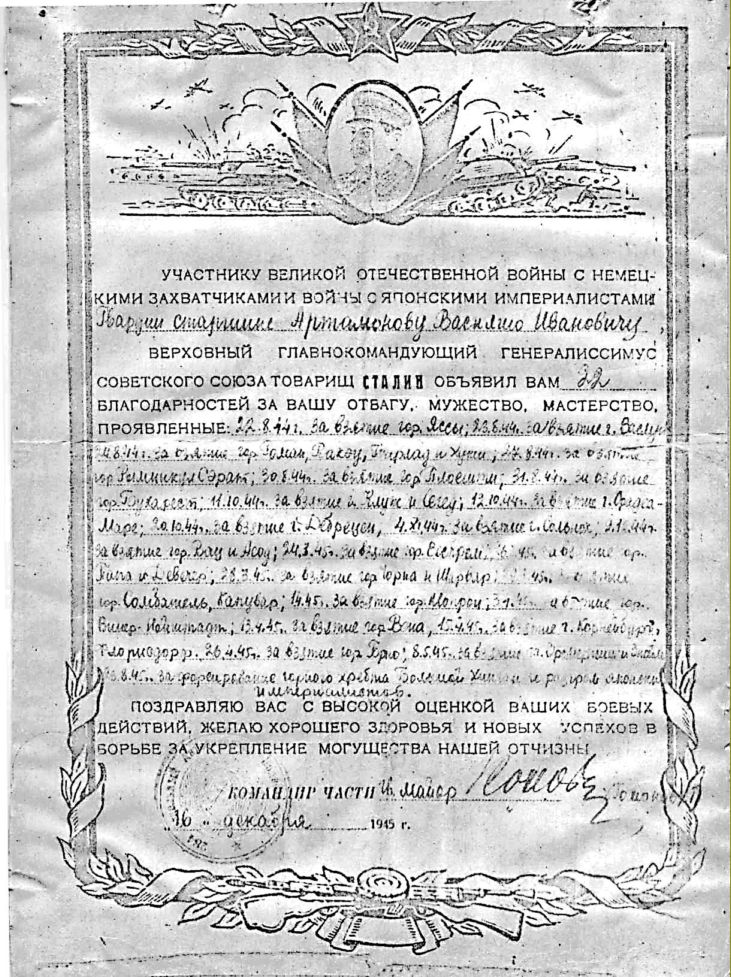 УЧАСТНИКУ ВЕЛИКОЙ ОТЕЧЕСТВЕННОЙ ВОЙНЫ С НЕМЕЦ-
КИМИ ЗАХВАТЧИКАМИ И ВОЙНЫ С ЯПОНСКИМИ ИМПЕРИАЛИСТАМИ
Гвардии старшине Артамонову Василию Ивановичу,
ВЕРХОВНЫЙ ГЛАВНОКОМАНДУЮЩИЙ ГЕНЕРАЛИССИМУС
СОВЕТСКОГО СОЮЗА ТОВАРИЩ СТАЛИН ОБЪЯВИЛ ВАМ 22
БЛАГОДАРНОСТЕЙ ЗА ВАШУ ОТВАГУ, МУЖЕСТВО, МАСТЕРСТВО,
ПРОЯВЛЕННЫЕ: 22.8.44г. за взятие гор. Яссы; 23.8.44г. за взятие г.
за взятие гор. Роман, Бакэу, Бырлад и Хуши; 27.8.44г. за взятие
гор. Рымникул Сэрат; 30.8.44г. за взятие гор. Плоешти; 31.8.44г. за взятие
гор. Бухарест; 11.10.44г. за взятие г. Клуж и Сегед; 12.10.44г. за взятие г. Орадеа-
Маре; 20.10.44г. за взятие г. Дебрецен; 4.XI.44г. за взятие г. Сольнок;
за взятие гор. Вац и Асод; за взятие гор. за взятие гор.
Папа и Девечер; за взятие гор. Чорна и Шарвар; за взятие
гор. Сомбатель, Капувар; 1.4.45г. за взятие гор. за взятие гор.
Винер-Нойштадт; 13.4.45г. за взятие гор. Вена, 15.4.45г. за взятие г. Корнейбург,
Флоридсдорф. 26.4.45г. за взятие гор. Брно; 8.5.45г. за взятие
за форсирование горного хребта Большой Хинган и разгром японских
империалистов.
ПОЗДРАВЛЯЮ ВАС С ВЫСОКОЙ ОЦЕНКОЙ ВАШИХ БОЕВЫХ
ДЕЙСТВИЙ, ЖЕЛАЮ ХОРОШЕГО ЗДОРОВЬЯ И НОВЫХ УСПЕХОВ В
БОРЬБЕ ЗА УКРЕПЛЕНИЕ МОГУЩЕСТВА НАШЕЙ ОТЧИЗНЫ
КОМАНДИР ЧАСТИ Гв. Майор
"16" декабря 1945 г.